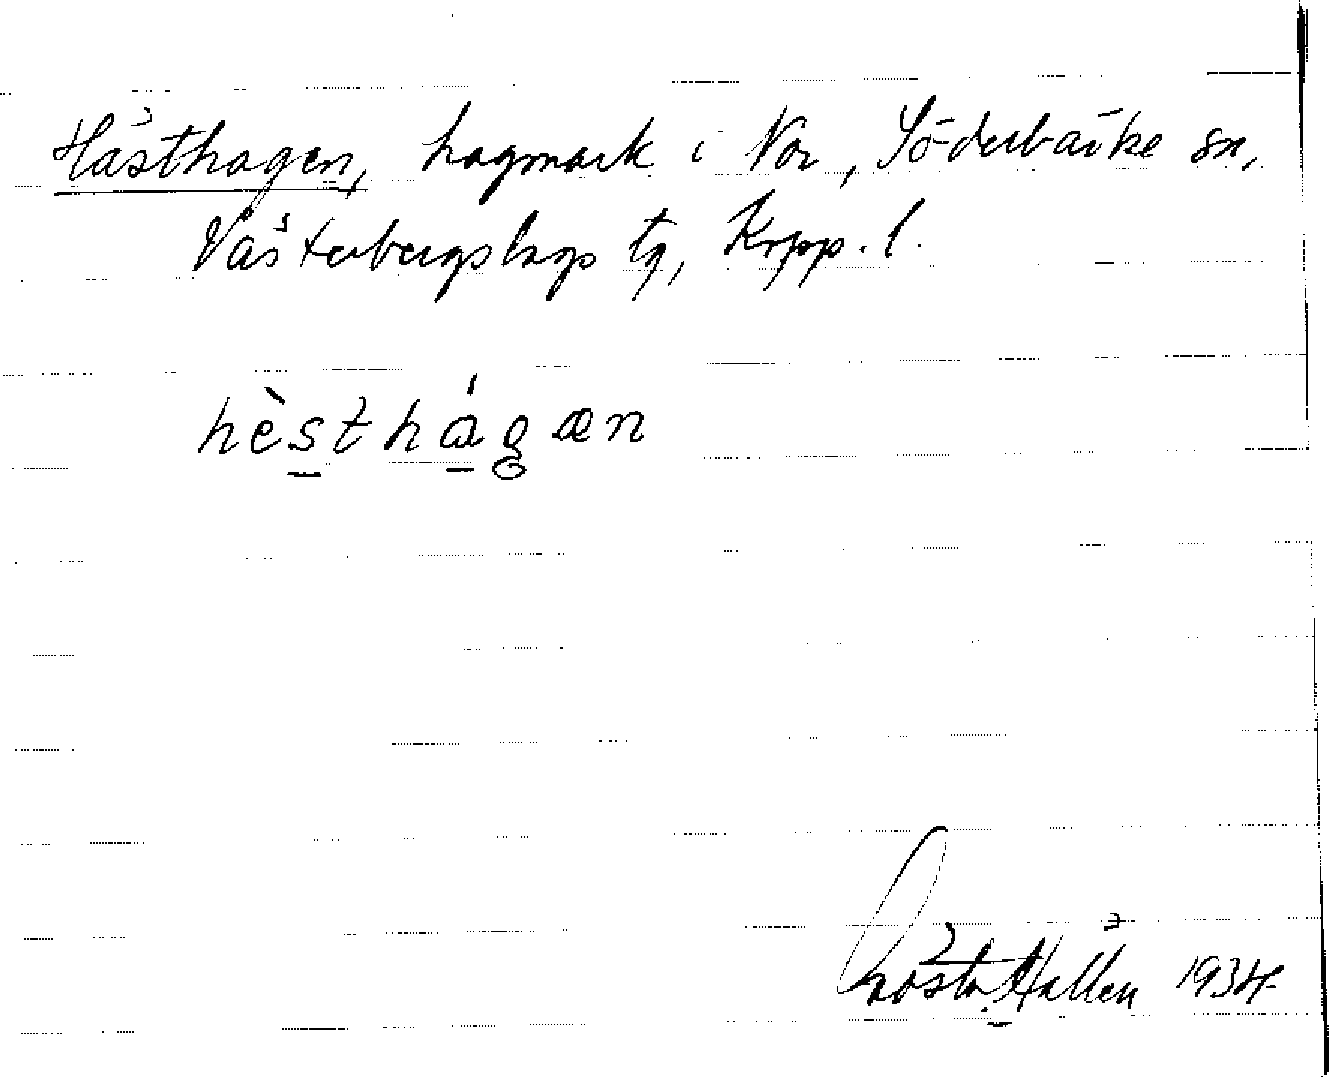 Hästhagen, hagmark i Nor, Söderbärke sn,
Västerbergslags tg, Kopp. l.
hèsthágæn
Gösta Hallén 1934